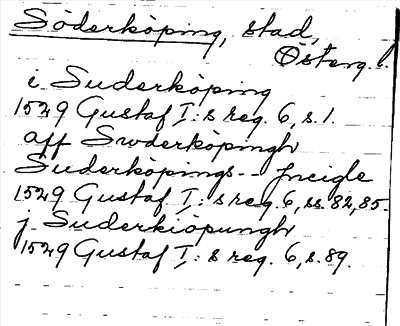 Söderköping, stad,
Österg. l.
i Suderköping
1529 Gustaf I:s reg. 6, s. 1.
aff Swderköpingh
Suderköpings-- Incigle
1529 Gustaf I:s reg. 6, ss. 82, 85.
j Suderkiöpungh
1529 Gustaf I:s reg. 6, s. 89.